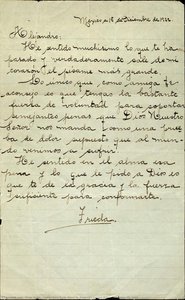 Alejandro:
He sentido muchísimo lo que te ha
pasado y verdaderamente sale de mi
corazón el pésame más grande.
Lo único que como amiga te
aconsejo es que tengas la bastante
fuerza de voluntad para soportar
semejantes penas que Dios Nuestro
Señor nos manda como una prue
ba de dolor supuesto que al mun
do venimos a sufrir.
He sentido en el alma esa
pena y lo que le pido a Dios es
que te dé la gracia y la fuerza
suficiente para conformarte.
Frieda.